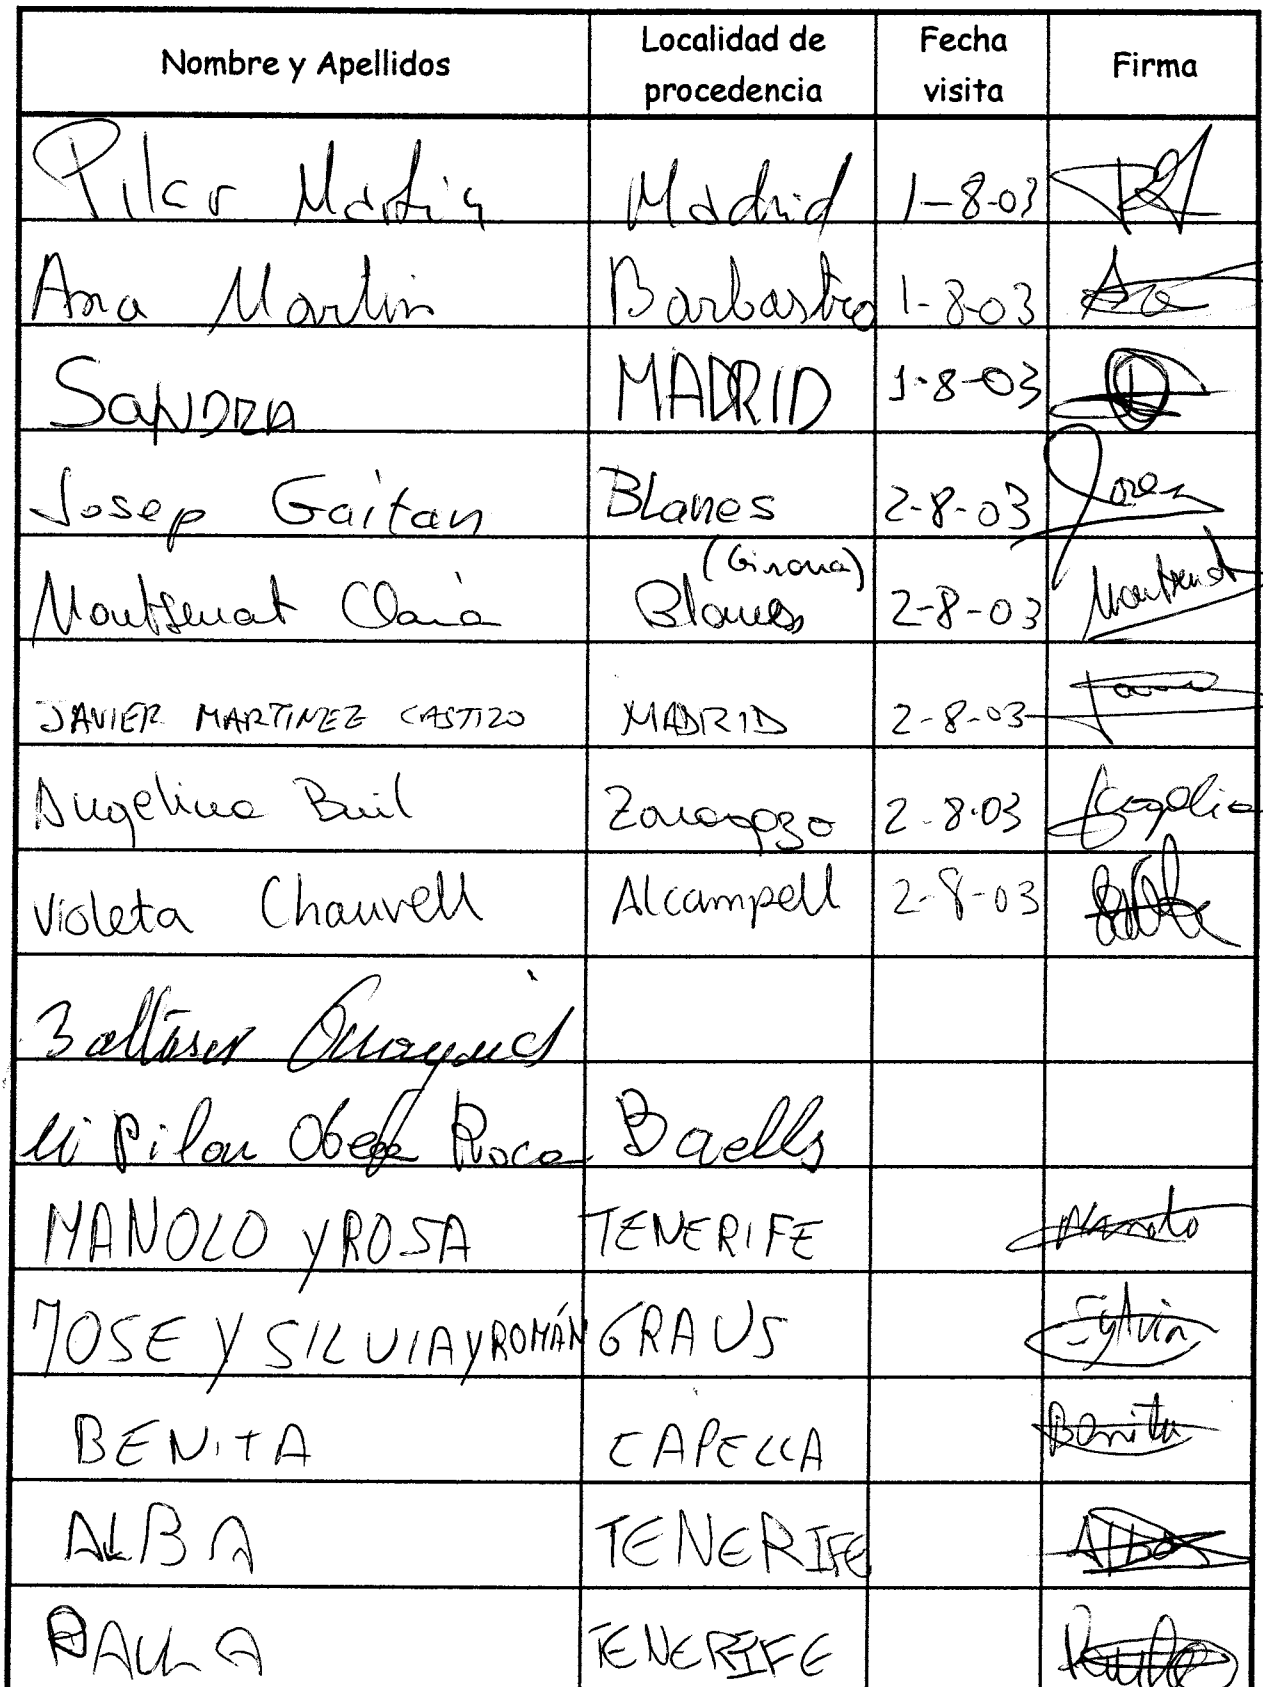 Nombre y Apellidos Localidad de procedencia Fecha visita Firma
Pilar Martín Madrid 1-8-03
Ana Martín Barbastro 1-8-03 Ana
SANDRA MADRID 1-8-03
Josep Gaitan Blanes 2-8-03
(Girona)
Montserrat Clarà Blanes 2-8-03 Montserrat
JAVIER MARTINEZ CASTRO MADRID 2-8-03
Angelina Buil Zaragoza 2-8-03
Violeta Chauvell Alcampell 2-8-03
Baltasar
Mª Pilar Roca Baells
MANOLO Y ROSA TENERIFE Manolo
JOSE Y SILVIA Y ROMÁN GRAUS Sylvia
BENITA CAPELLA Benita
ALBA TENERIFE Alba
PAULA TENERIFE Paula